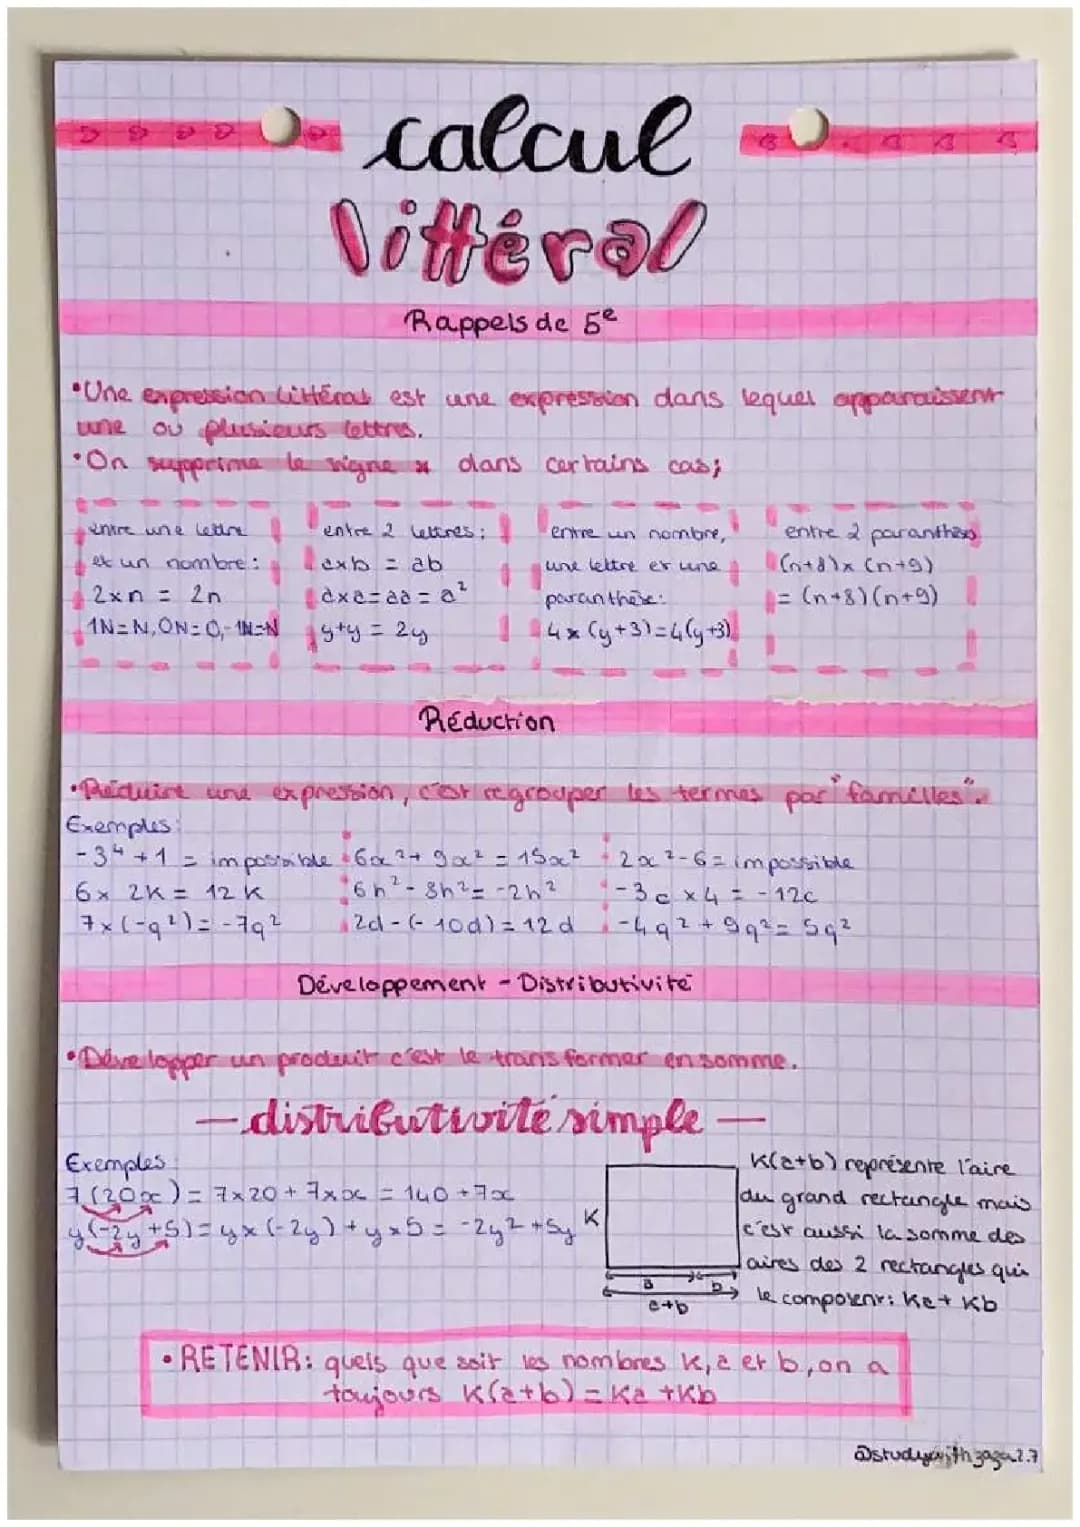 calcul
littéral
Rappels de 5e
•Une expression littéral est une expression dans lequel apparaissent
une ou plusieurs lettres.
•On supprime le signe x dans certains cas;
entre une lettre
et un nombre:
2xn = 2n
1N=N, 0N=0, -1N=-N
entre 2 lettres:
axb = ab
axa=aa=a²
y+y = 2y
entre un nombre,
une lettre et une
paranthèse:
4x(y+3)=4(y+3)
entre 2 paranthèses
(n+8)x(n+9)
= (n+8)(n+9)
Réduction
•Réduire une expression, c'est regrouper les termes par "familles".
Exemples:
-3⁴+1 = impossible
6x 2K = 12K
7x(-q²)=-7q²
6x²+9x²=15x²
6h²-8h²=-2h²
2d-(-10d)=12d
2x²-6=impossible
-3c x4=-12c
-4q²+9q²=5q²
Développement - Distributivité
•Développer un produit c'est le transformer en somme.
—distributivité simple—
Exemples:
7(20x)=7x20+7xx=140+7x
y(-2y+5)=yx(-2y)+yx5=-2y²+5y
K
a
b
a+b
K(a+b) représente l'aire
du grand rectangle mais
c'est aussi la somme des
aires des 2 rectangles qui
le composent: Ka+Kb
•RETENIR: quels que soit les nombres K,a et b, on a
toujours K(a+b)=Ka+Kb
@studywithzaza2.7